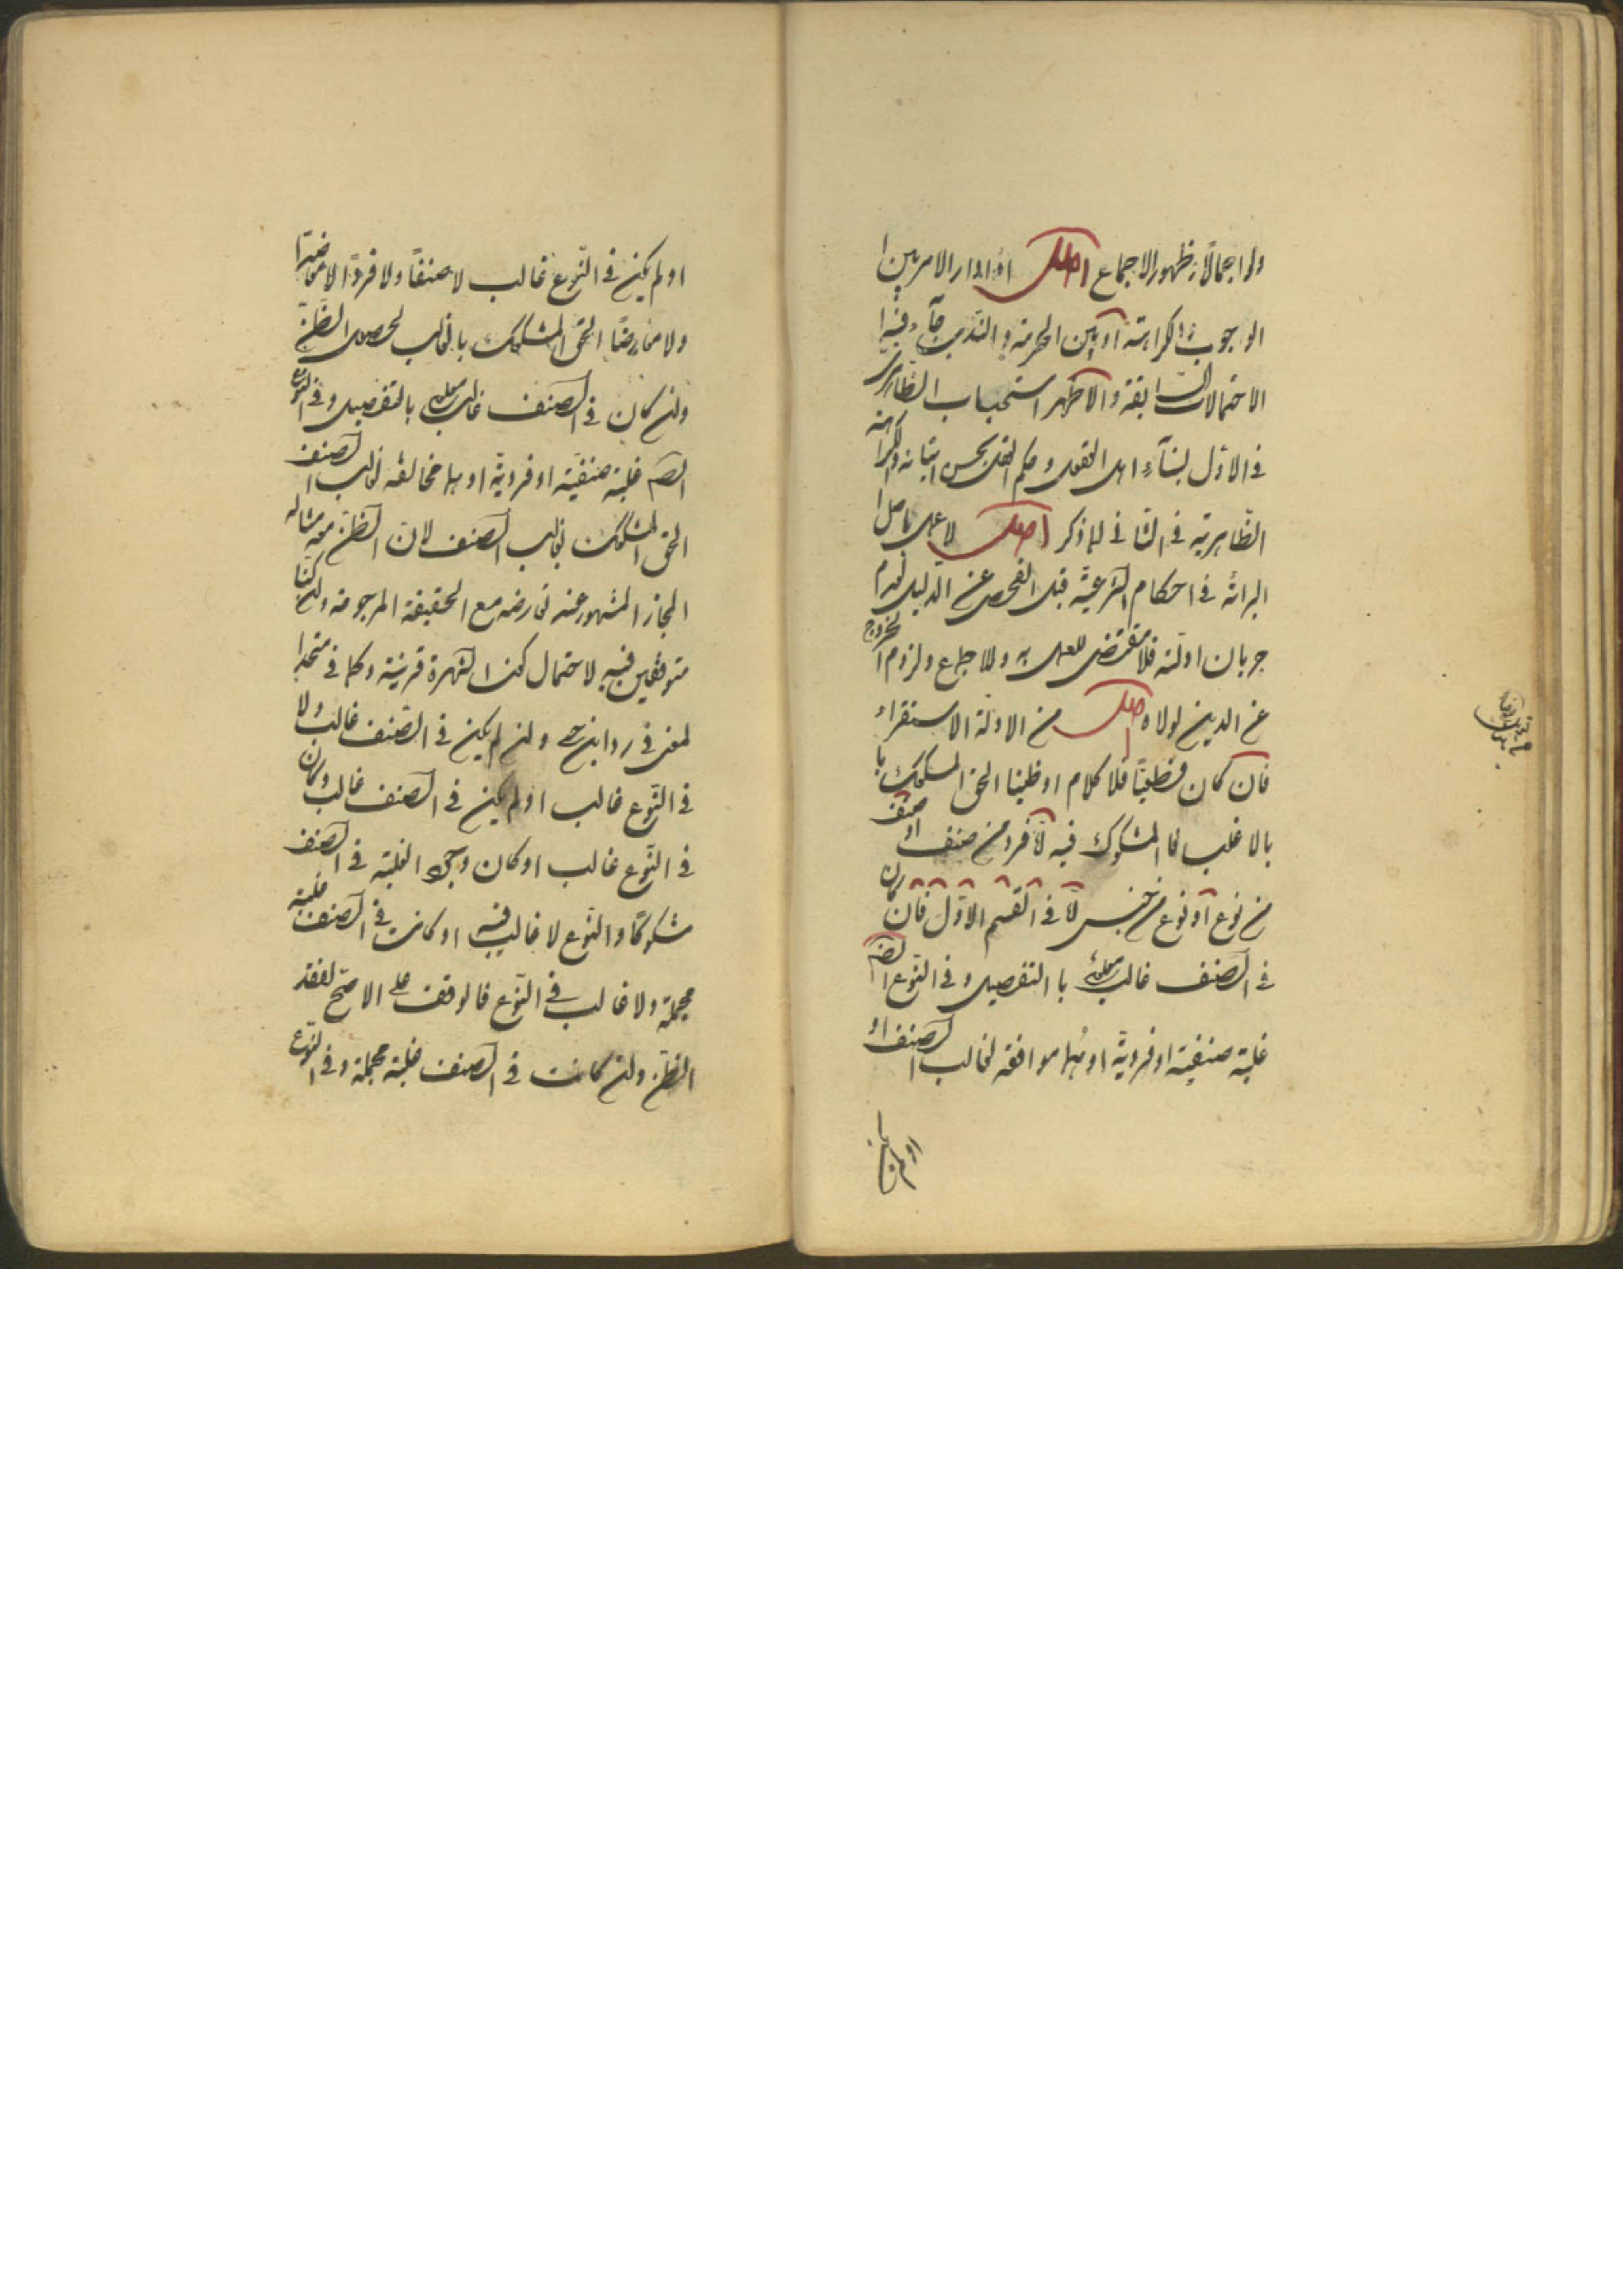 ولو اجمالا لظهور الاجماع اصل اذا دار الامر بين ا
الوجوب والكراهة او بين الحرمة والندب جآء فيه ا
الاحتمالات السابقة والاظهر استحباب الظاهرى
فى الاوّل لبنآء اهل العقول وحكم العقل بحسن اتيانه والكراهة
الظاهرية فى الثانى لما ذكر اصل لا عمل باصل ا
البرائة فى احكام الشرعيّة قبل الفحص عن الدليل لعدم
جريان ادلّته فلا مقتضى للعمل به وللاجماع ولزوم الخروج
عن الدين لولاه اصل من الادلة الاستقراء
فان كان قطعيّا فلا كلام او ظنيا الحق المشكوك با
بالاغلب فالمشكوك فيه امّا فرد من صنف او صنف
من نوع او نوع من جنس امّا فى القسم الاوّل فان كان
فى الصنف غالب معلوم باالتفصيل وفى النوع ايضا
غلبة صنفيّة او فرديّة او بهما موافقه لغالب الصنف او
او لم يكن فى النوع غالب لا صنفًا ولا فردًا لا معاضدا
ولا معارضًا الحق المشكوك بالغالب لحصول الظنّ
وان كان فى الصنف غالب معلوم بالتفصيل وفى النوع
ايضا غلبة صنفيّة او فرديّة او بهما مخالفه لغالب الصنف
الحق المشكوك بغالب الصنف لانّ الظنّ معه مثاله
المجاز المشهور عند تعارضه مع الحقيقة المرجوحة وان كنّا
متوقفين فيه لاحتمال كون الشهرة قرينة وكما فى متحد ا
لمعنى فى رواية ولن لم يكن فى الصنف غالب ولا
فى النّوع غالب او لم يكن فى الصنف غالب وكان
فى النّوع غالب او كان وجود الغلبة فى الصنف
مشكوكًا والنّوع لا غالب فيه او كانت فى الصنف غلبة
مجملة ولا غالب فى النّوع فالوقف على الاصحّ لفقد
الظنّ وان كانت فى الصنف غلبة مجملة وفى النّوع